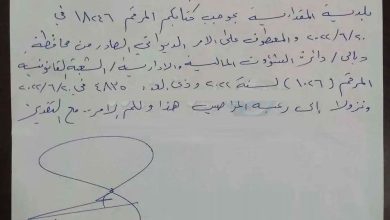 بلدية المقدادية بموجب كتابكم المرقم ١٨٢٤٦ في
٢٠٢٢/٦/٢٠ والمعطوف على الامر الديواني الصادر من محافظة
ديالى / دائرة الشؤون المالية والادارية / الشعبة القانونية
المرقم (١٠٢٦) لسنة ٢٠٢٢ وذي العدد ٤٨٣٥ في ٢٠٢٢/٦/٢
ونزولا إلى رغبة المراجعين هذا ولكم الامر .. مع التقدير